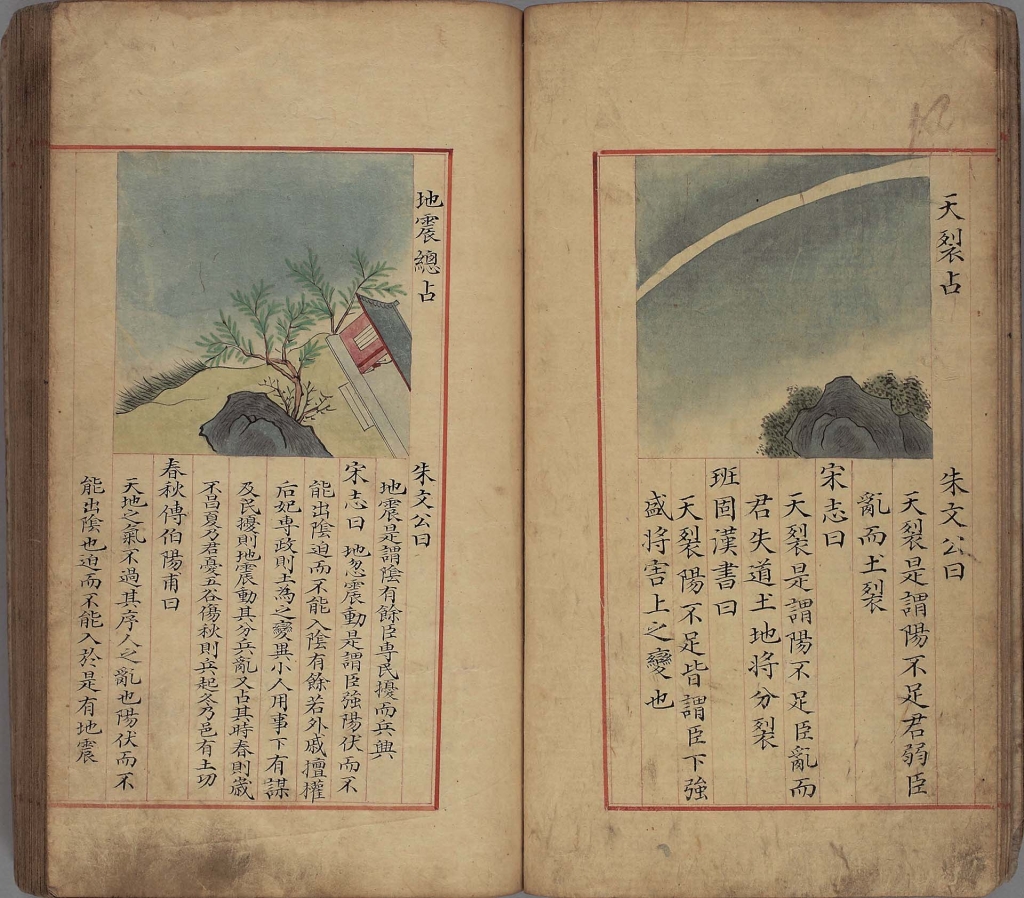 天裂占
朱文公曰
天裂是謂陽不足君弱臣
亂而土裂
宋志曰
天裂是謂陽不足臣亂而
君失道土地將分裂
班固漢書曰
天裂陽不足皆謂臣下強
盛將害上之變也
地震總占
朱文公曰
地震是謂陰有餘臣專民擾而兵興
宋志曰地忽震動是謂臣強陽伏而不
能出陰迫而不能入陰有餘若外戚擅權
后妃專政則土為之變異小人用事下有謀
及民擾則地震動其分兵亂又占其時春則歲
不昌夏乃君憂五谷傷秋則兵起冬乃邑有土功
春秋傳伯陽甫曰
天地之氣不過其序人之亂也陽伏而不
能出陰也迫而不能入於是有地震